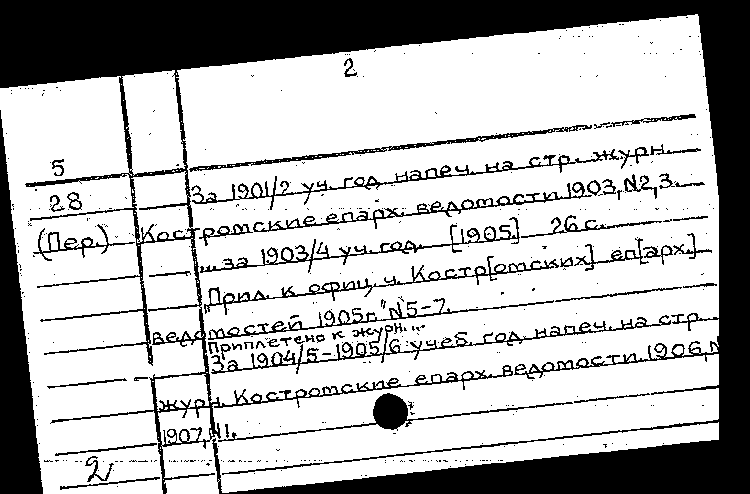 2
5
28
(Пер.)
За 1901/2 уч. год напеч. на стр. журн.
Костромские епарх. ведомости 1903, N2,3.
... за 1903/4 уч. год. [1905] 26 с.
"Прил. к офиц. ч. Костр[омских] еп[арх.]
ведомостей 1905г" N5-7.
Приплетено к журн. ...
За 1904/5-1905/6 учеб. год напеч. на стр.
журн. Костромские епарх. ведомости. 1906, N
1907, N1.
2